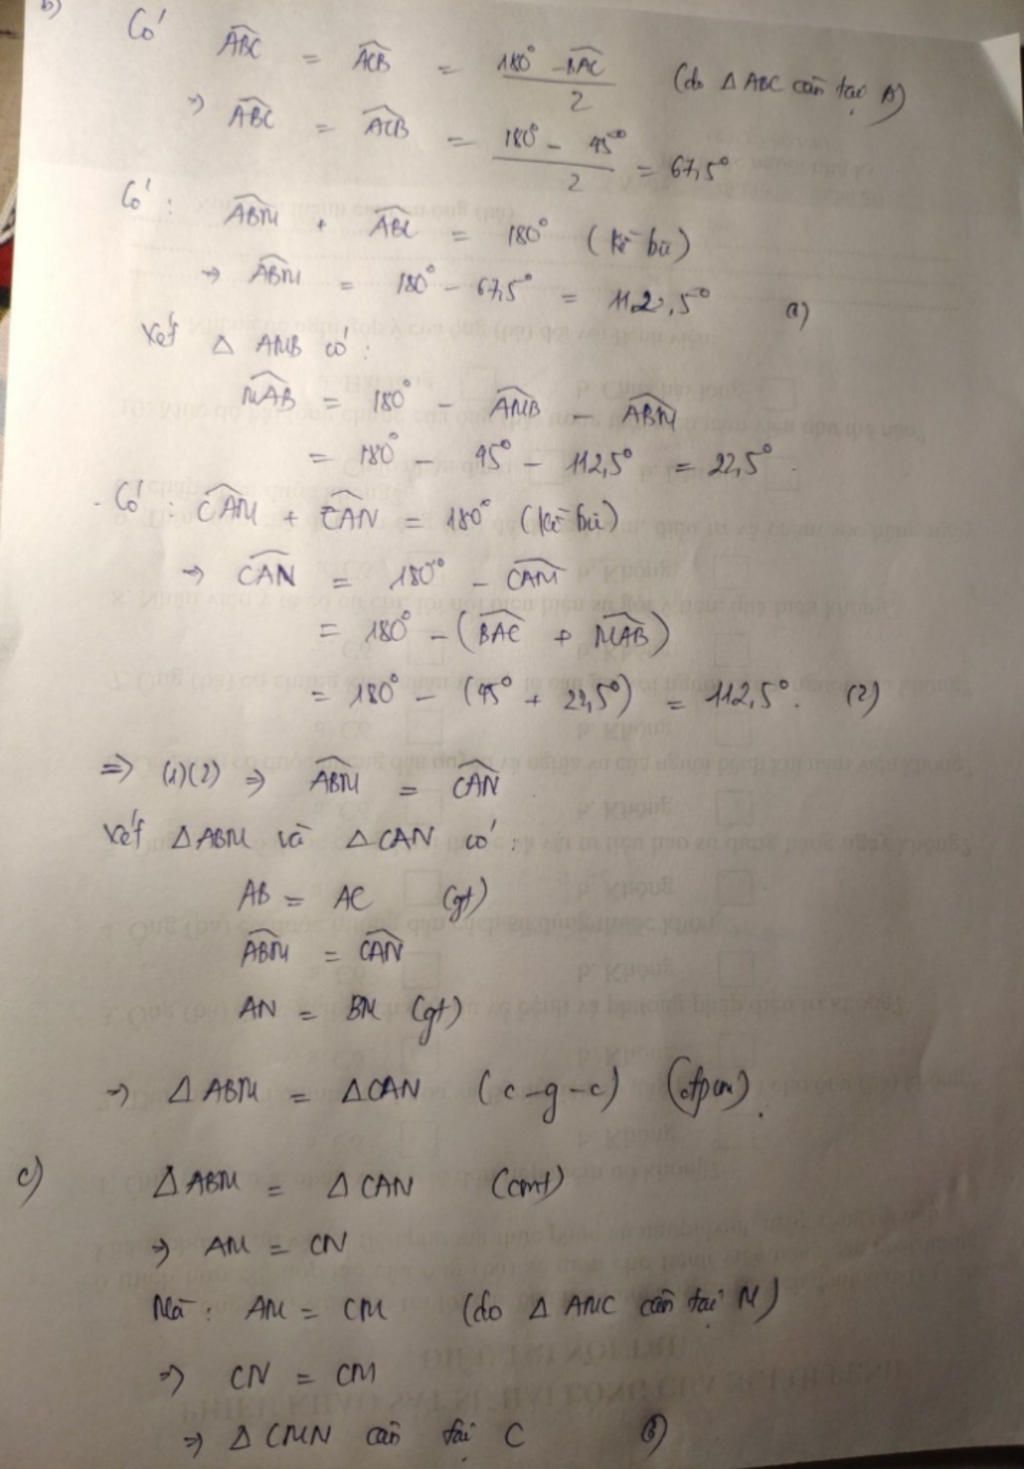 b) Có ABC = ACB = (180° - BAC)/2 (do Δ ABC cân tại A)
→ ABC = ACB = (180° - 45°)/2 = 67,5°
Có: ABM + ABC = 180° (kề bù)
→ ABM = 180° - 67,5° = 112,5° (1)
Xét Δ AMB có:
MAB = 180° - AMB - ABM
= 180° - 45° - 112,5° = 22,5°.
- Có: CAM + CAN = 180° (kề bù)
→ CAN = 180° - CAM
= 180° - (BAC + MAB)
= 180° - (45° + 22,5°) = 112,5°. (2)
⇒ (1)(2) ⇒ ABM = CAN
Xét Δ ABM và Δ CAN có:
AB = AC (gt)
ABM = CAN
AN = BM (gt)
→ Δ ABM = Δ CAN (c-g-c) (đpcm).
c) Δ ABM = Δ CAN (cmt)
⇒ AM = CN
Mà: AM = CM (do Δ AMC cân tại M)
⇒ CN = CM
⇒ Δ CMN cân tại C